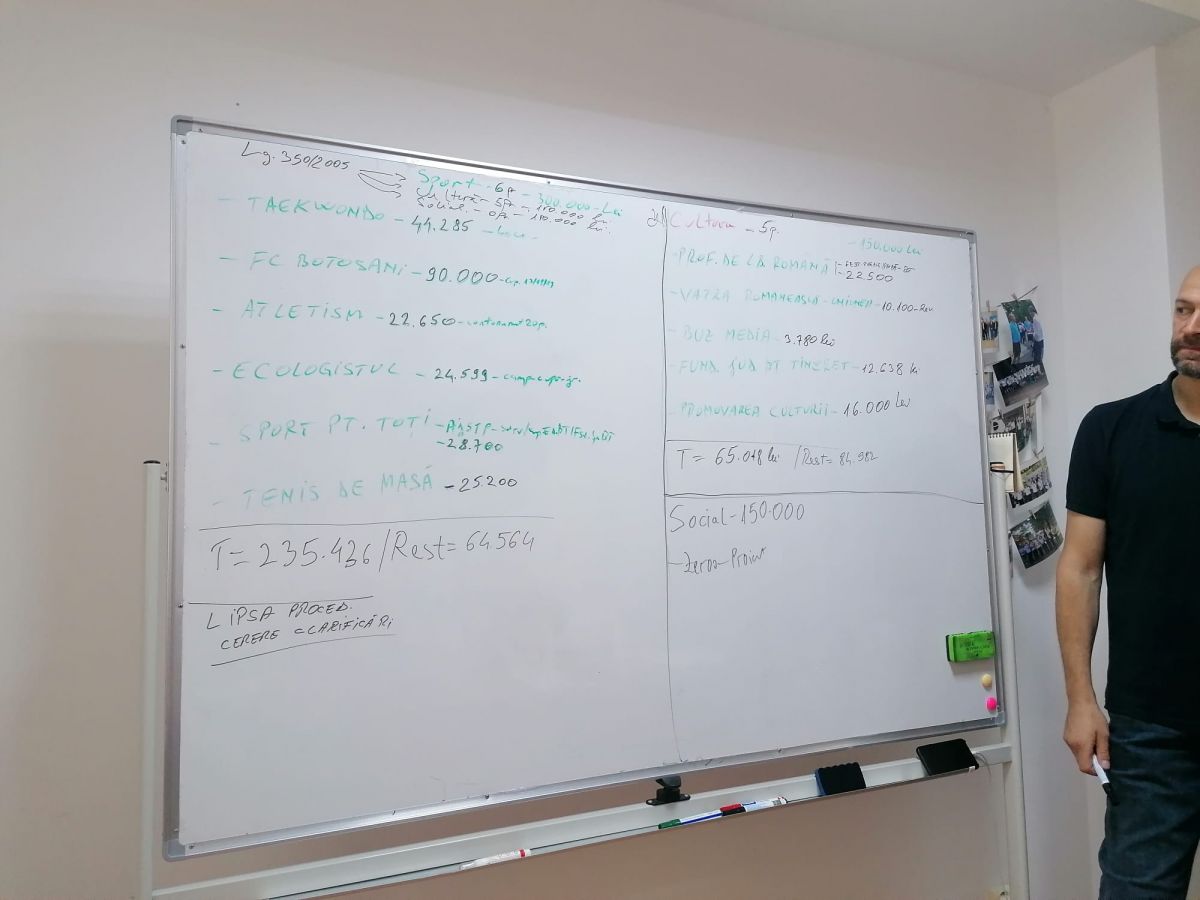 Lg. 350/2005
Sport - 6p - 300.000 - Lei
Cultură - 5p - 150.000 lei
Social - 0p - 150.000 lei.
- TAEKWONDO - 44.285
- FC BOTOȘANI - 90.000
- ATLETISM - 22.650
- ECOLOGISTUL - 24.599
- SPORT PT. TOȚI - AJSTP
- 28.700
- TENIS DE MASĂ - 25.200
T = 235.436 / Rest = 64.564
LIPSA PROCED.
CERERE CLARIFICĂRI
Cultura - 5p.
- 150.000 Lei
- PROF. DE LB ROMÂNĂ
- 22.500
- VATRA ROMANEASCĂ - 10.100 -
- BUZ MEDIA - 3.780 lei
- FUND. JUD BT TINERET - 12.638
- PROMOVAREA CULTURII - 16.000 Lei
T = 65.018 lei / Rest = 84.982
Social - 150.000
- Zero - Proiect